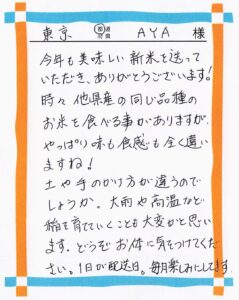 東京 AYA 様
今年も美味しい新米を送って
いただき、ありがとうございます!
時々他県産の同じ品種の
お米を食べる事がありますが、
やっぱり味も食感も全く違い
ますね!
土や手のかけ方が違うので
しょうか。大雨や高温など
稲を育てていくことも大変かと思い
ます。どうぞお体に気をつけてくだ
さい。1日が配送日。毎月楽しみにしてます。